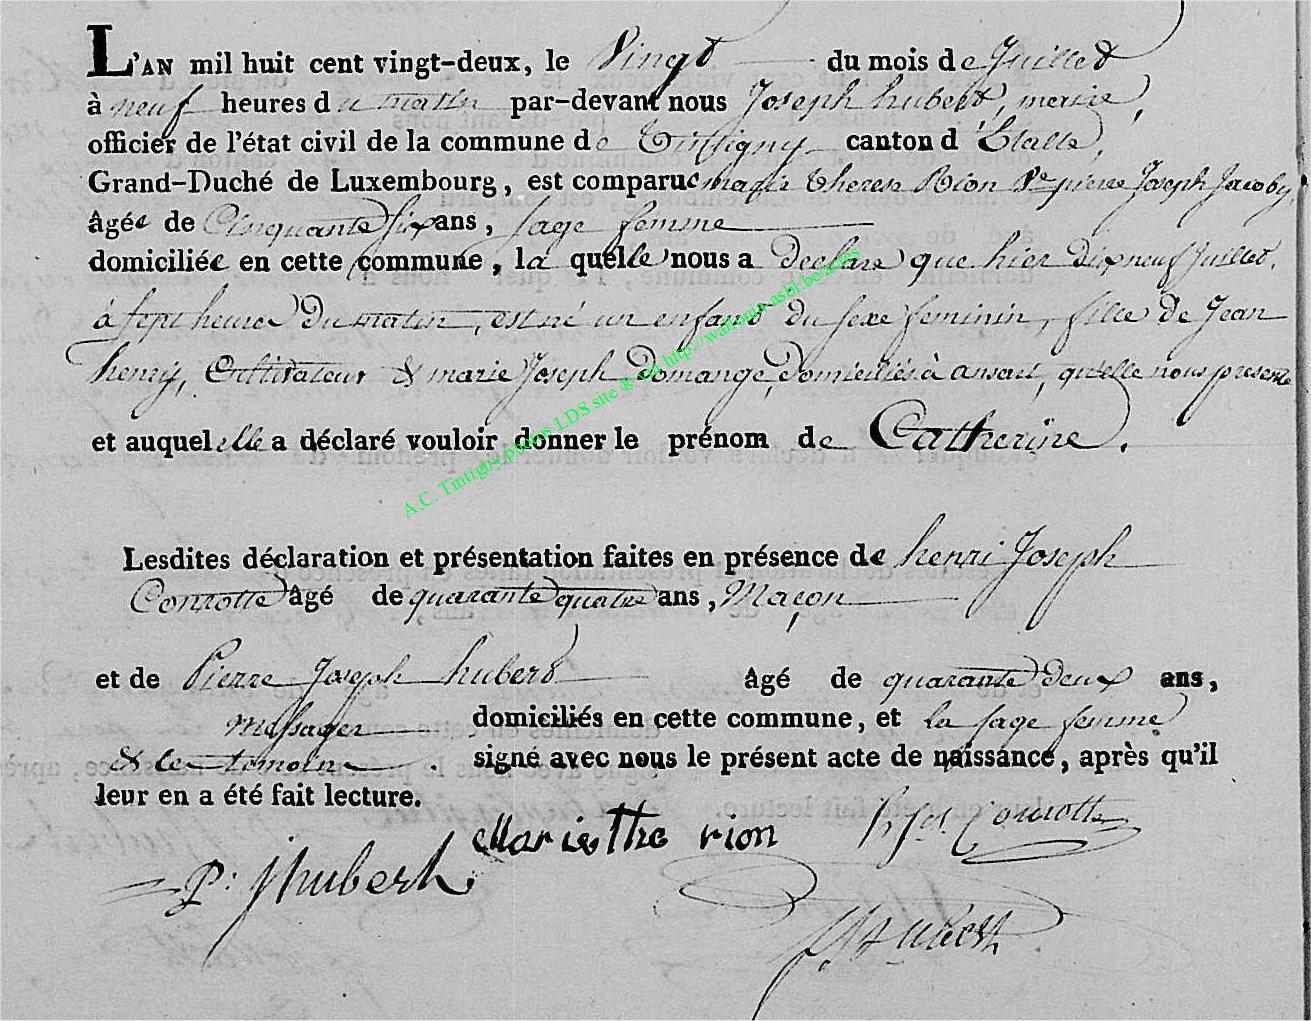 L'AN mil huit cent vingt-deux, le Vingt du mois de Juillet
à neuf heures du matin par-devant nous Joseph hubert, maire,
officier de l'état civil de la commune de Tintigny canton d'Etalle,
Grand-Duché de Luxembourg, est comparue marie Therese Rion Ve pierre Joseph Jacoby,
âgée de Cinquante six ans, sage femme
domiciliée en cette commune, la quelle nous a Declaré que hier dix neuf Juillet
à sept heures Du matin, est né un enfant du sexe feminin, fille de Jean
henry, Cultivateur & marie Joseph Domange, Domiciliés à ansart, qu'elle nous presente
et auquel elle a déclaré vouloir donner le prénom de Catherine.
Lesdites déclaration et présentation faites en présence de henri Joseph
Conrotte âgé de quarante quatre ans, Maçon
et de Pierre Joseph hubert âgé de quarante deux ans,
Messager domiciliés en cette commune, et la sage femme
& les temoins signé avec nous le présent acte de naissance, après qu'il
leur en a été fait lecture.
Marie the rion h jh Conrotte
P: j hubert
J. hubert
A.C. Tintigny photos LDS site & via http://wallonia-asbl.be/actes